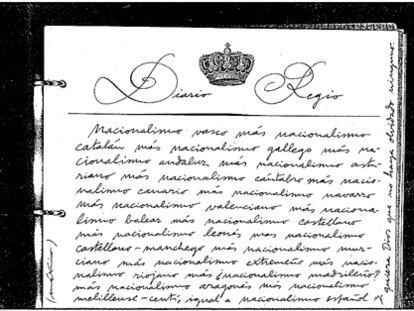 Diario Regio
Nacionalismo vasco más nacionalismo
catalán más nacionalismo gallego más na-
cionalismo andaluz más nacionalismo astu-
riano más nacionalismo cántabro más nacio-
nalismo canario más nacionalismo navarro
más nacionalismo valenciano más naciona-
lismo balear más nacionalismo castellano
más nacionalismo leonés mas nacionalismo
castellano-manchego más nacionalismo mur-
ciano más nacionalismo extremeño más nacio-
nalismo riojano más ¿nacionalismo madrileño?
más nacionalismo aragonés más nacionalismo
melillense-ceutí, igual a nacionalismo español
y quiera Dios que no haya olvidado ninguno.